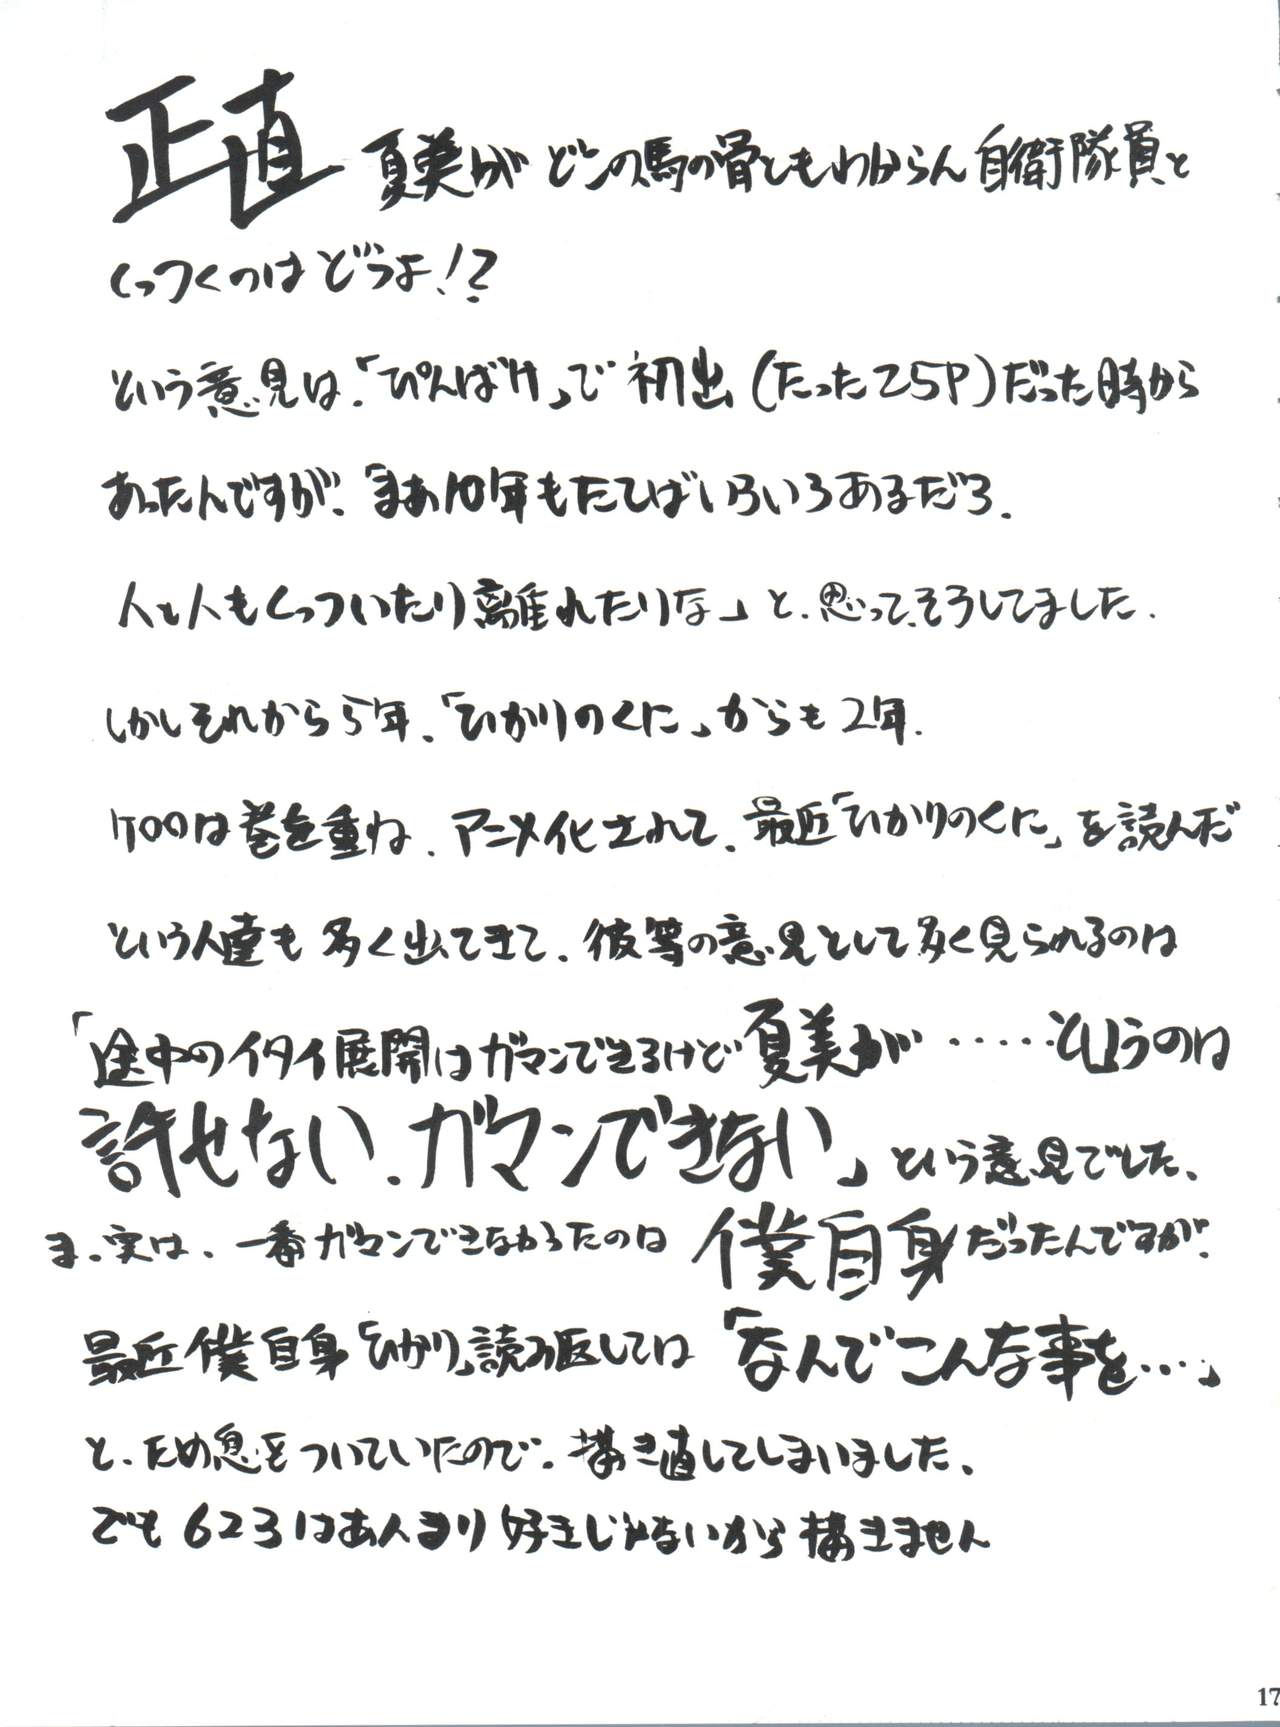 正直 夏美が どこの馬の骨ともわからん 自衛隊員と
くっつくのは どうよ!?
という意見は、「ぴんばけ」で 初出 (たった25P)だった時から
あったんですが、「まあ10年もたてばいろいろあるだろ.
人と人もくっついたり離れたりな」と、思って、そうしてました.
しかしそれから5年、「ひかりのくに」からも2年.
ケロロは巻を重ね、アニメ化されて、最近「ひかりのくに」を読んだ
という人達も多く出てきて、彼等の意見として多く見られるのは
「途中のイタイ展開はガマンできるけど 夏美が ‥‥‥というのは
許せない、ガマンできない」という意見でした、
ま、実は、一番ガマンできなかったのは 僕自身だったんですが、
最近僕自身「ひかり」読み返しては「なんでこんな事を…」
と、ため息をついていたので、描き直してしまいました、
でも 623はあんまり好きじゃないから 描きません
17